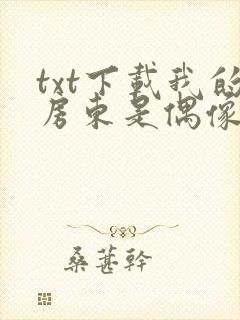 txt下載我的
房東是偶像
桑葚幹